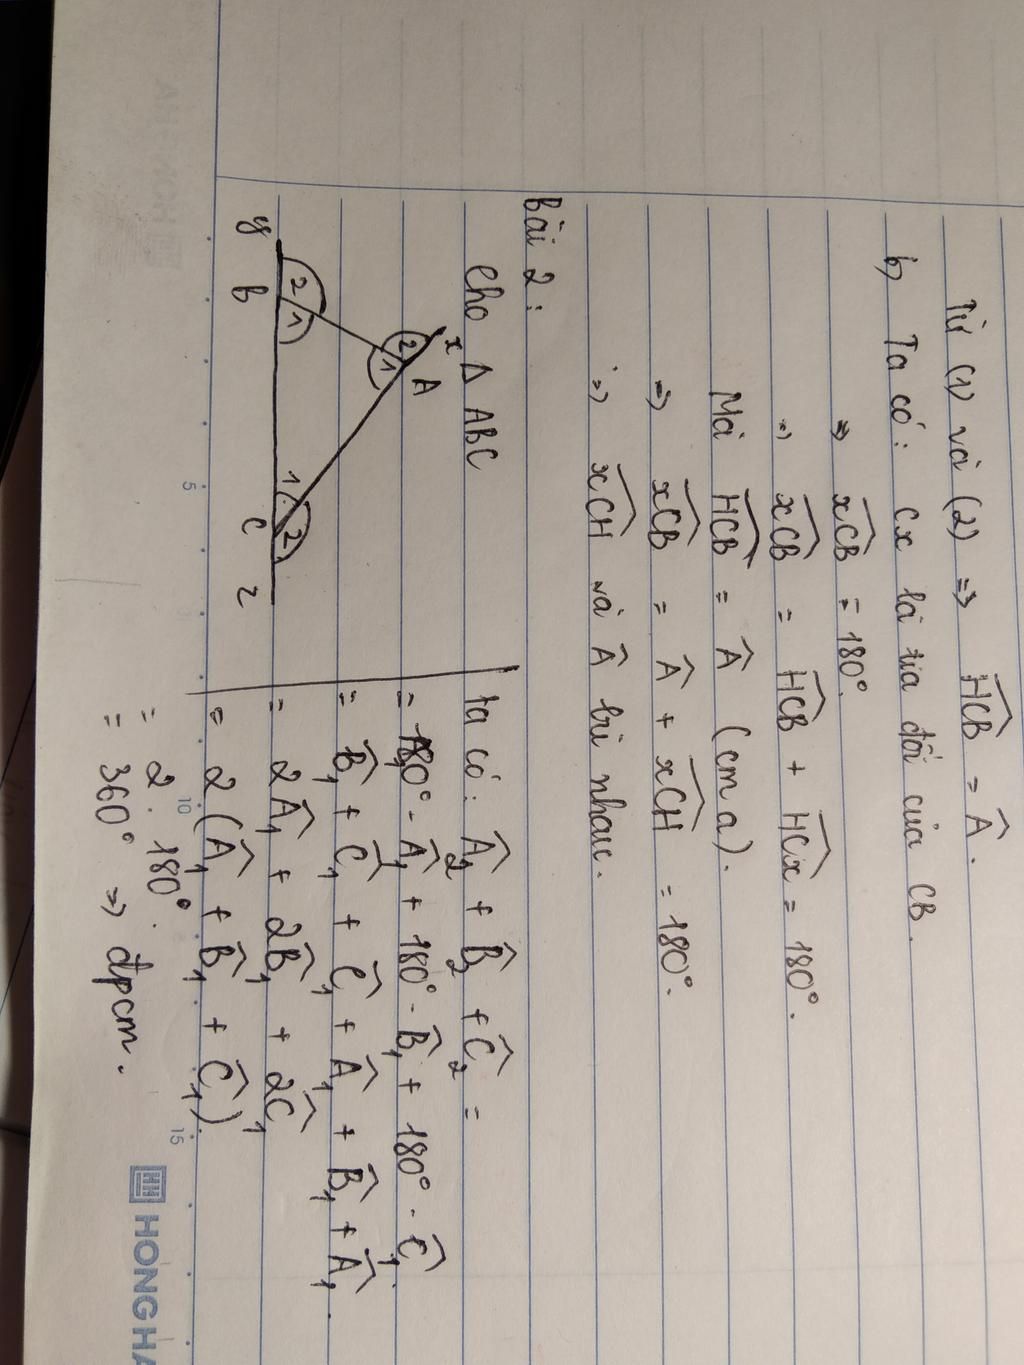 Từ (1) và (2) => HCB = Â.
b, Ta có: Cx là tia đối của CB
=> xCB = 180°.
=> xCB = HCB + HCx = 180°.
Mà HCB = Â (cm a).
=> xCB = Â + xCH = 180°.
=> xCH và Â bù nhau.
Bài 2:
Cho Δ ABC
x
2
1
A
y
B
2
1
1
C
2
z
Ta có: Â₂ + B̂₂ + Ĉ₂ =
= 180° - Â₁ + 180° - B̂₁ + 180° - Ĉ₁.
= B̂₁ + Ĉ₁ + Ĉ₁ + Â₁ + B̂₁ + Â₁.
= 2Â₁ + 2B̂₁ + 2Ĉ₁
= 2(Â₁ + B̂₁ + Ĉ₁).
= 2 . 180°.
= 360° => đpcm.
5
10
15
HONG HA